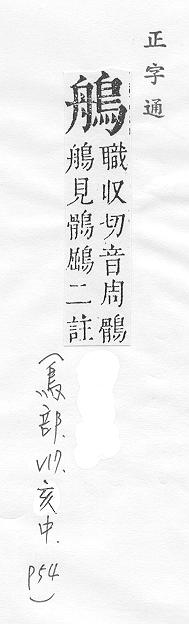 正字通
鵃
職收切音周鶻
鵃見鶻鶌二註
(鳥部.V17.亥中.P54)